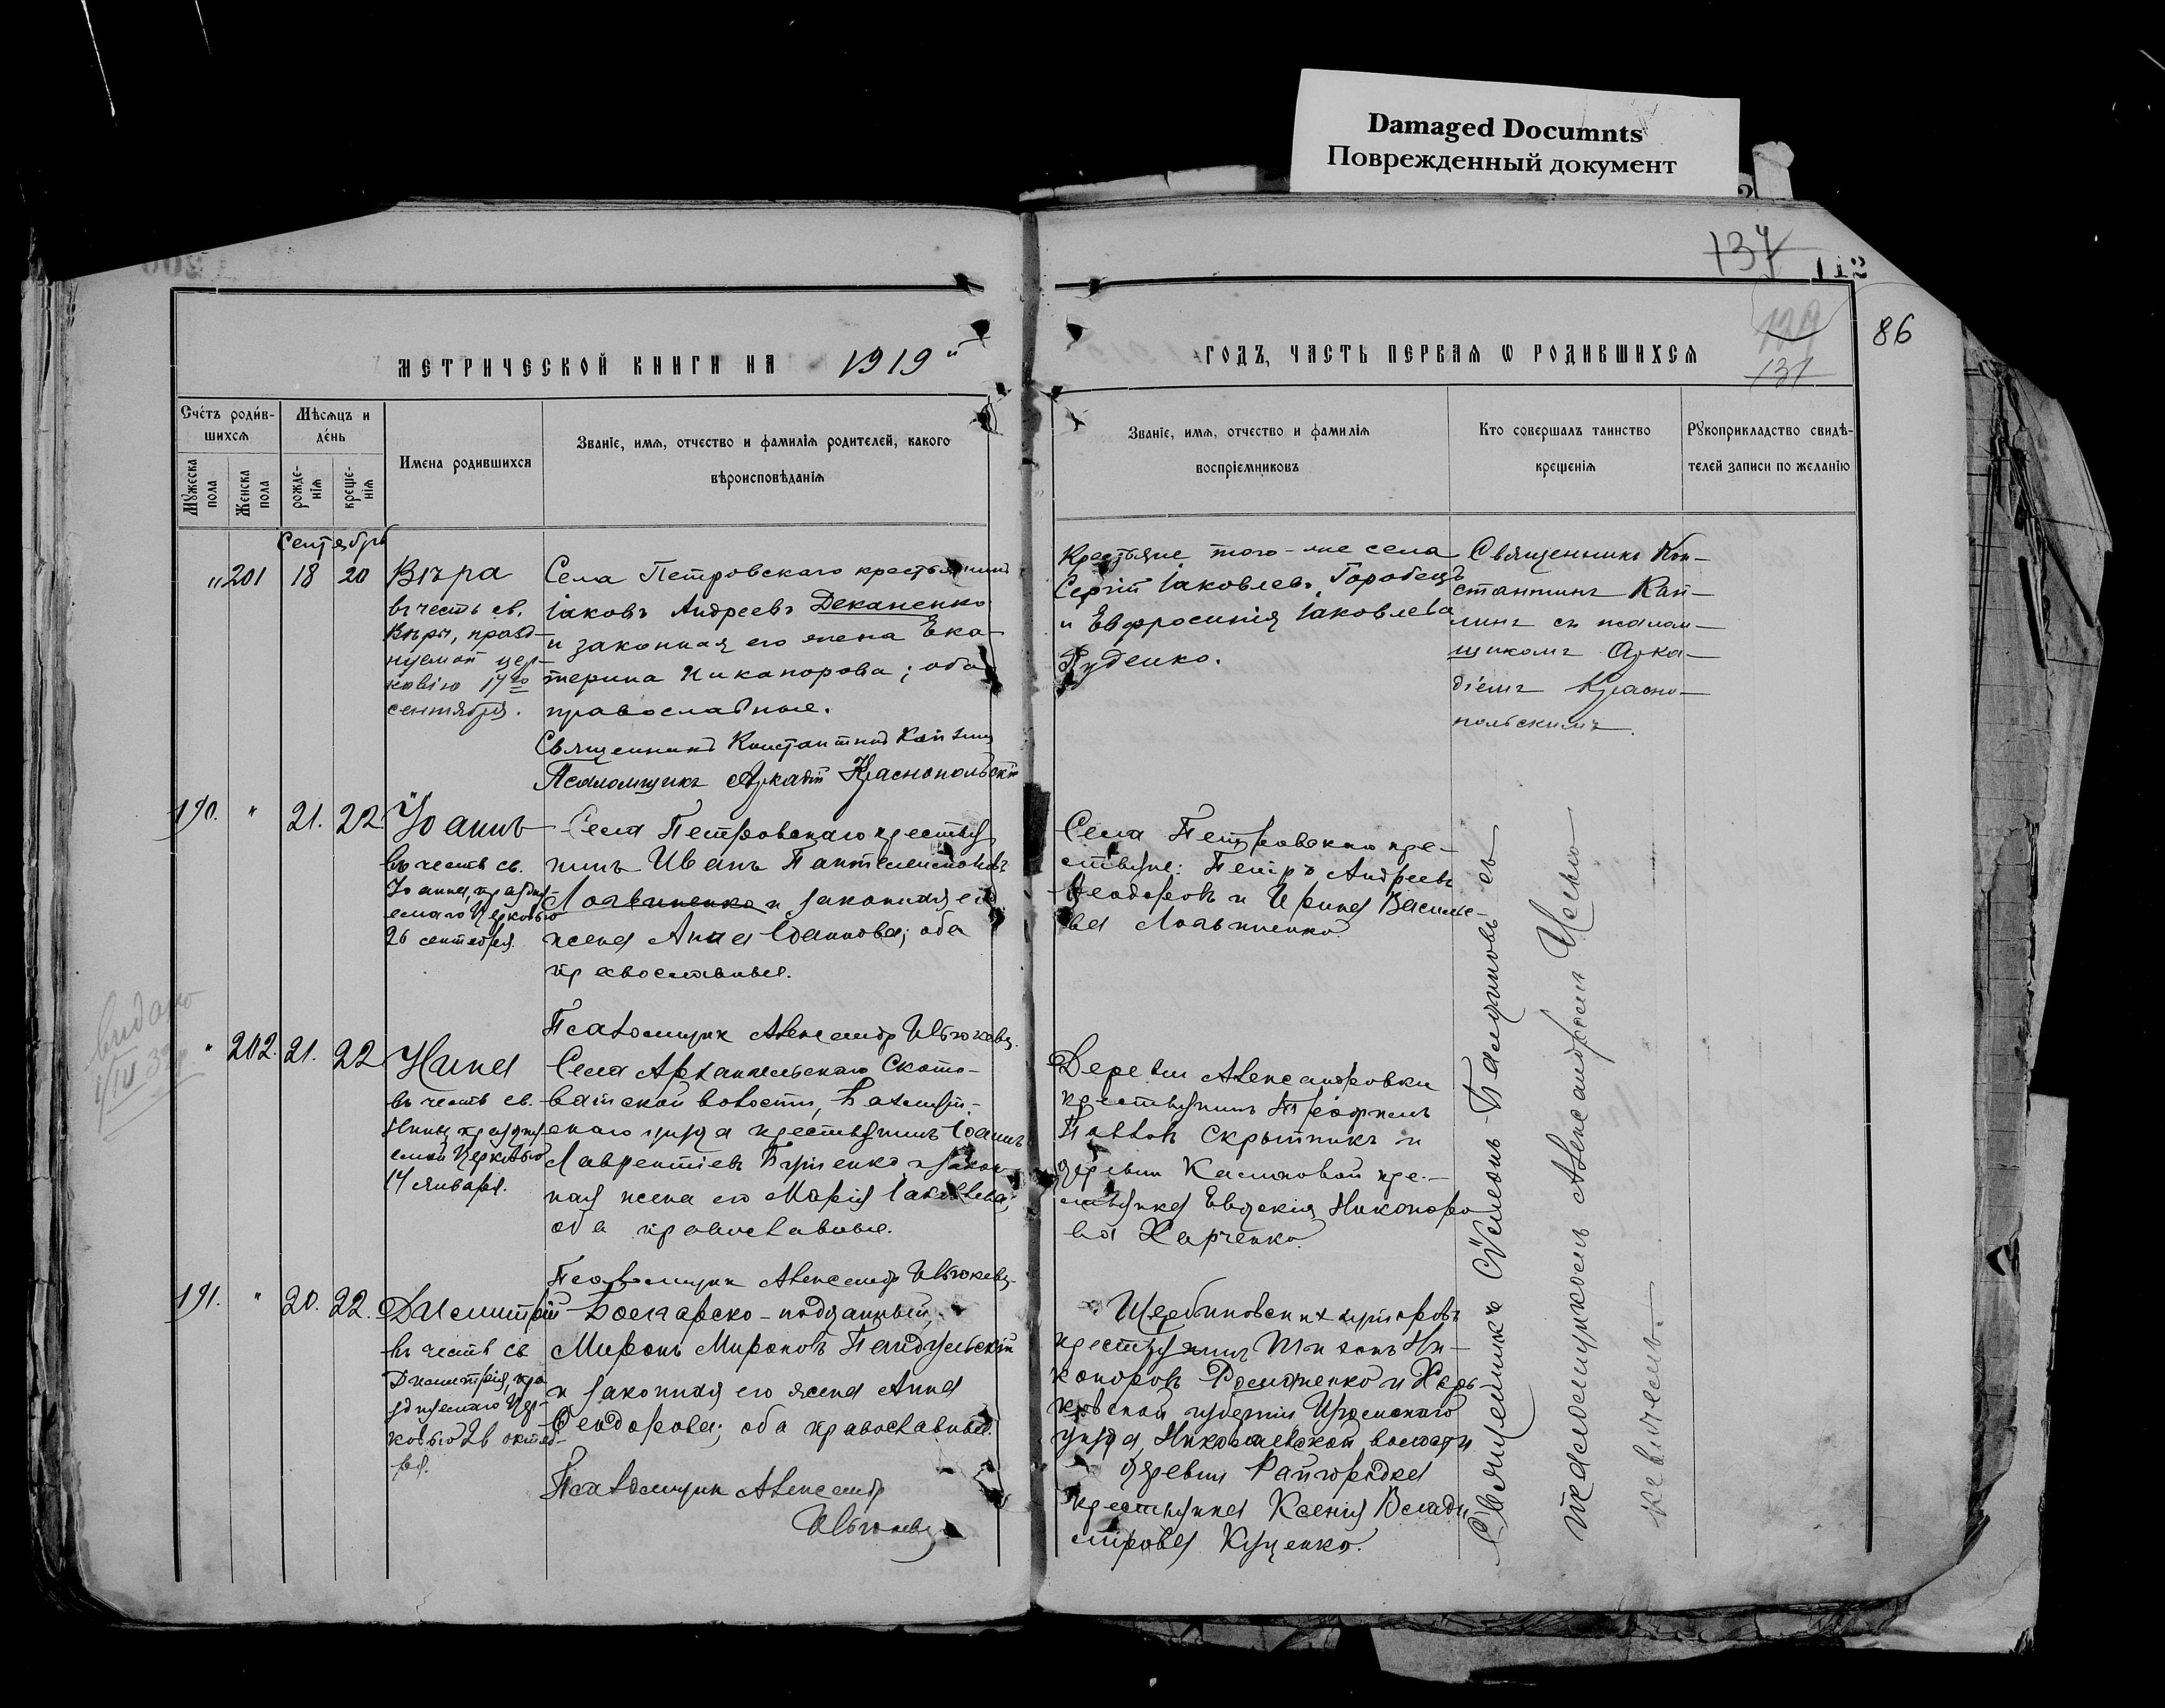 Damaged Documnts
Поврежденный документ
137
112
86
131
МЕТРИЧЕСКОЙ КНИГИ НА 1919
ГОДЪ, ЧАСТЬ ПЕРВАЯ Ѡ РОДИВШИХСЯ
Счётъ родив-
шихся
Мѣсяцъ и
день
Мужеска
пола
Женска
пола
рожде-
нія
креще-
нія
Имена родившихся
Званіе, имя, отчество и фамилія родителей, какого
вѣроисповѣданія
Званіе, имя, отчество и фамилія
воспріемниковъ
Кто совершалъ таинство
крещенія
Рукоприкладство свидѣ-
телей записи по желанію
Сентябрь
" 201 18 20
Вѣра
въ честь св.
Вѣры, празд-
нуемой цер-
ковію 17го
сентября.
Села Петровскаго крестьянинъ
Іаковъ Андреевъ Деканенко
и законная его жена Ека-
терина Никанорова; оба
православные.
Священникъ Константинъ
Псаломщикъ Аркадій Краснопольскій
Крестьяне того-же села
Сергій Іаковлевъ Горобецъ
и Евфросинія Іаковлева
Руденко.
Священникъ Кон-
стантинъ
съ псалом-
щикомъ Арка-
діемъ Красно-
польскимъ.
190. " 21. 22.
Іоаннъ
въ честь св.
Іоанна, праздну-
емаго Церковью
26 сентября.
Села Петровскаго крестья-
нинъ Иванъ Пантелеимоновъ
Логвиненко и законная его
жена Анна Іоаннова; оба
православные.
Псаломщик Александр
Села Петровскаго кре-
стьяне: Петръ Андреевъ
Феодоровъ и Ирина Василье-
ва Логвиненко.
видано
" 202. 21. 22
Нина
въ честь св.
Нины, праздну-
емой Церковью
14 января.
Села Архангельскаго Ското-
ватской волости, Бахмут-
скаго уѣзда крестьянинъ Іоаннъ
Лаврентіевъ и закон-
ная жена его Марія Іаковлева;
оба православные.
Псаломщик Александр
Деревни Александровки
крестьянинъ Трофимъ
Павловъ Скрытникъ и
деревни кре-
стьянка Евдокія Никаноро
ва Харченко.
191. " 20. 22.
Димитрій
въ честь св.
Димитрія, пра
зднуемаго Цер-
ковью 26 октяб-
ря.
Болгарско-подданный
Миронъ Мироновъ
и законная его жена Анна
Феодорова; оба православные.
Псаломщик Александр
Щербиновскихъ хуторовъ
крестьянинъ Ни-
каноровъ Романенко и Харь-
ковской губерніи Изюмскаго
уѣзда, Николаевской волости
деревни Райгородка
крестьянка Ксенія Влади
мірова Куценко.
Священникъ Сѵмеонъ съ
псаломщикомъ Александромъ